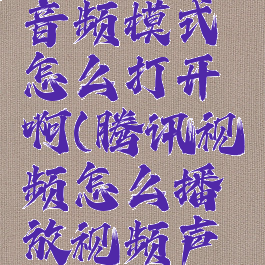 音频模式
怎么打开
啊(腾讯视
频怎么播
放视频声